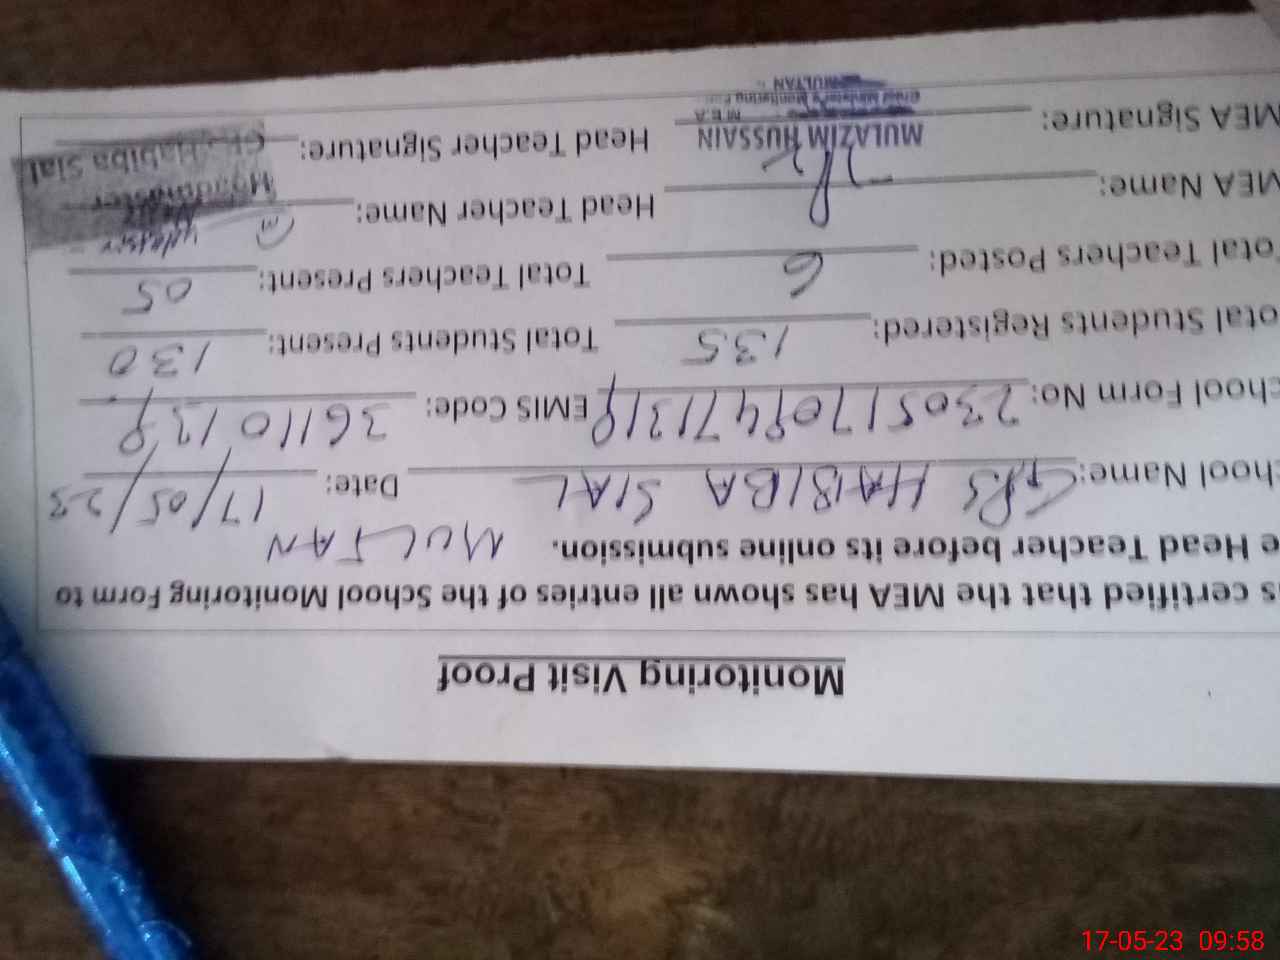 Monitoring Visit Proof
s certified that the MEA has shown all entries of the School Monitoring Form to
e Head Teacher before its online submission. MULTAN
hool Name: GPS HABIBA SIAL Date: 17/05/23
chool Form No: EMIS Code:
otal Students Registered: 135 Total Students Present: 130
otal Teachers Posted: 6 Total Teachers Present: 05
MEA Name: Head Teacher Name:
MEA Signature: Head Teacher Signature:
MULAZIM HUSSAIN
M.E.A
MULTAN
Headmaster
Habiba Sial
17-05-23 09:58